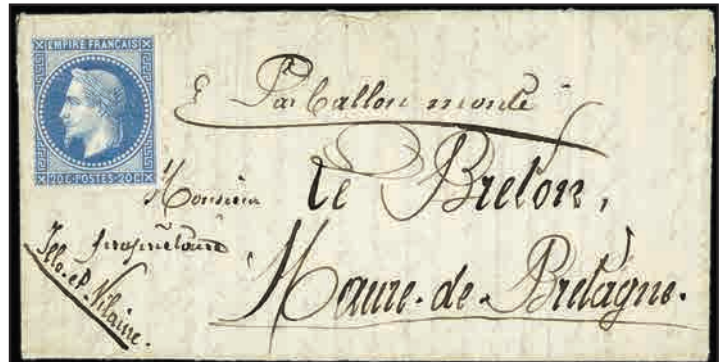 EMPIRE FRANÇAIS
20 C - POSTES - 20 C
Par ballon monté
Monsieur Le Breton,
propriétaire
Maure-de-Bretagne.
Ille-et-Vilaine.